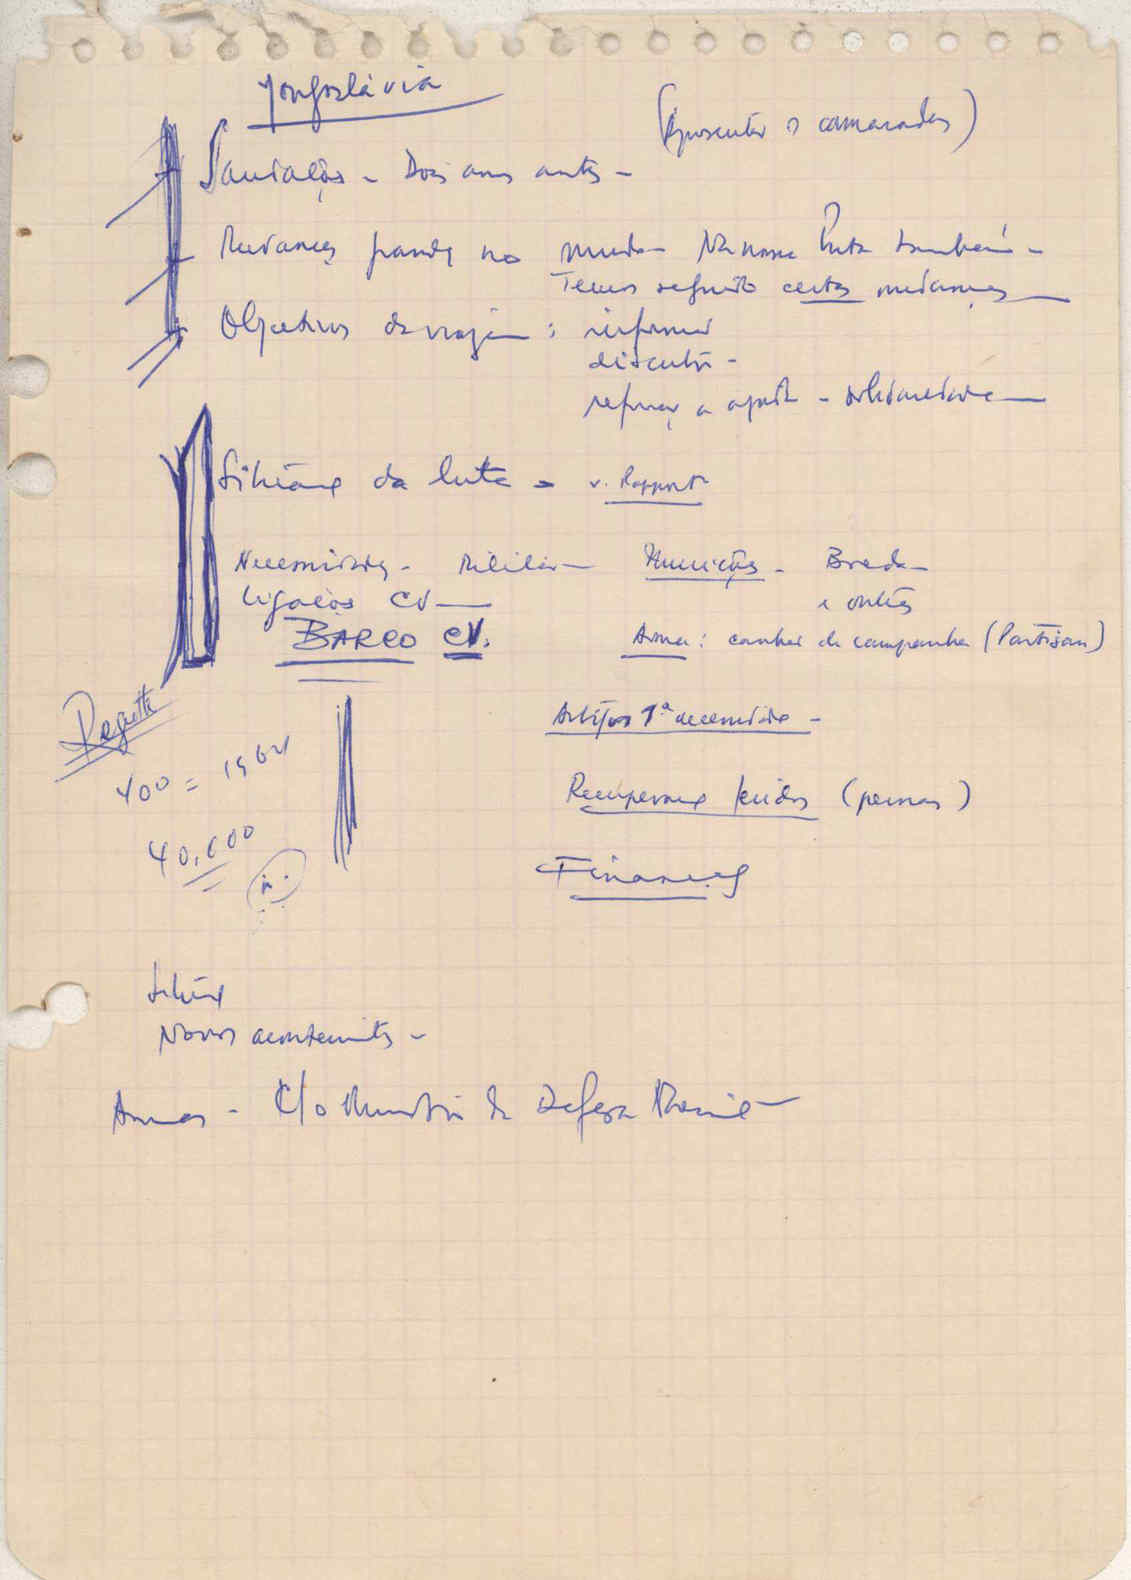 Yougoslávia
(Apresentar os camaradas)
Saudações - Dois anos antes -
Mudanças grandes no mundo - Na nossa luta também -
Temos seguido certas mudanças
Objectivos da viagem : informar
discutir -
reforçar a ajuda - solidariedade
Situação da luta - v. Rapport
Necessidades - Militar Munições - Breda
e outras
Ligações CV
BARCO CV.
Arma : canhão de campanha (Partisan)
Regretta
Artigos 1ª necessidade -
400 = 1964
Recuperação feridos (pernas)
40.000
Finanças
Situação
Novos acontecimentos -
Armas - C/o Ministro da Defesa